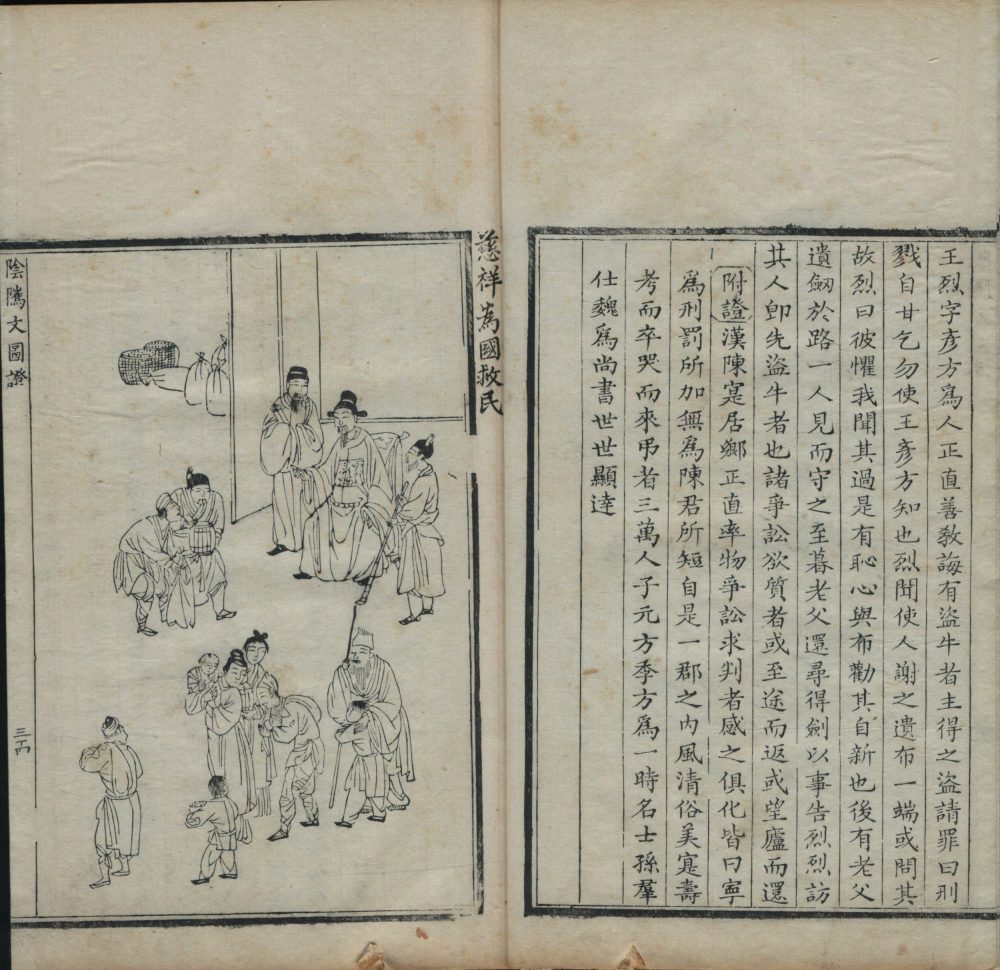 王烈字彥方爲人正直善敎誨有盜牛者主得之盜請罪曰刑
戮自甘乞勿使王彥方知也烈聞使人謝之遺布一端或問其
故烈曰彼懼我聞其過是有恥心與布勸其自新也後有老父
遺劒於路一人見而守之至暮老父還尋得劍以事告烈烈訪
其人卽先盜牛者也諸爭訟欲質者或至途而返或望廬而還
附證漢陳寔居鄉正直率物爭訟求判者感之俱化皆曰寧
爲刑罰所加無爲陳君所短自是一郡之內風清俗美寔壽
考而卒哭而來弔者三萬人子元方季方爲一時名士孫羣
仕魏爲尚書世世顯達
慈祥為國救民
陰隲文圖證